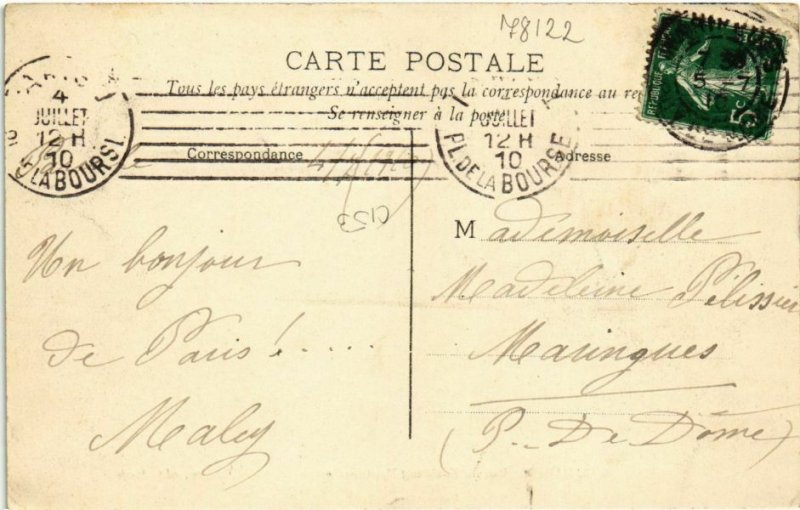 78122
CARTE POSTALE
Tous les pays étrangers n'acceptent pas la correspondance au
Se renseigner à la poste
PARIS
4
JUILLET
12 H
10
PL. DE LA BOURSE
JUILLET
12 H
10
PL. DE LA BOURSE
5 - 7
5c
Correspondance
Adresse
C153
Un bonjour
de Paris!....
Maley
Mademoiselle
Madeleine Pélissier
Maringues
(P. De Dôme)